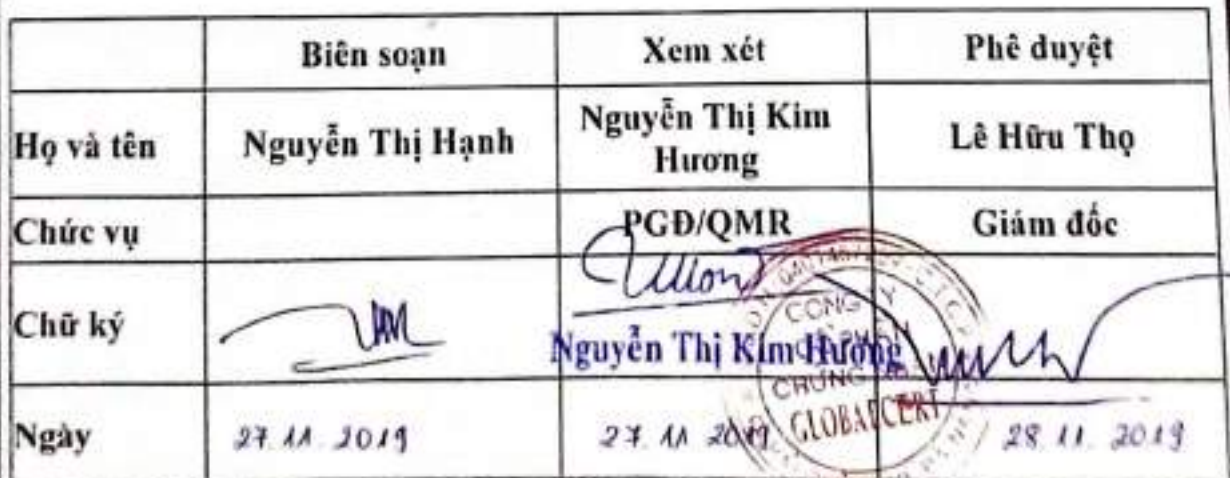 Biên soạn Xem xét Phê duyệt
Họ và tên Nguyễn Thị Hạnh Nguyễn Thị Kim Hương Lê Hữu Thọ
Chức vụ PGĐ/QMR Giám đốc
Chữ ký
Nguyễn Thị Kim Hương
CÔNG
CHỨNG
GLOBALCERT
Ngày 27.11.2019 27.11 2019 28.11.2019